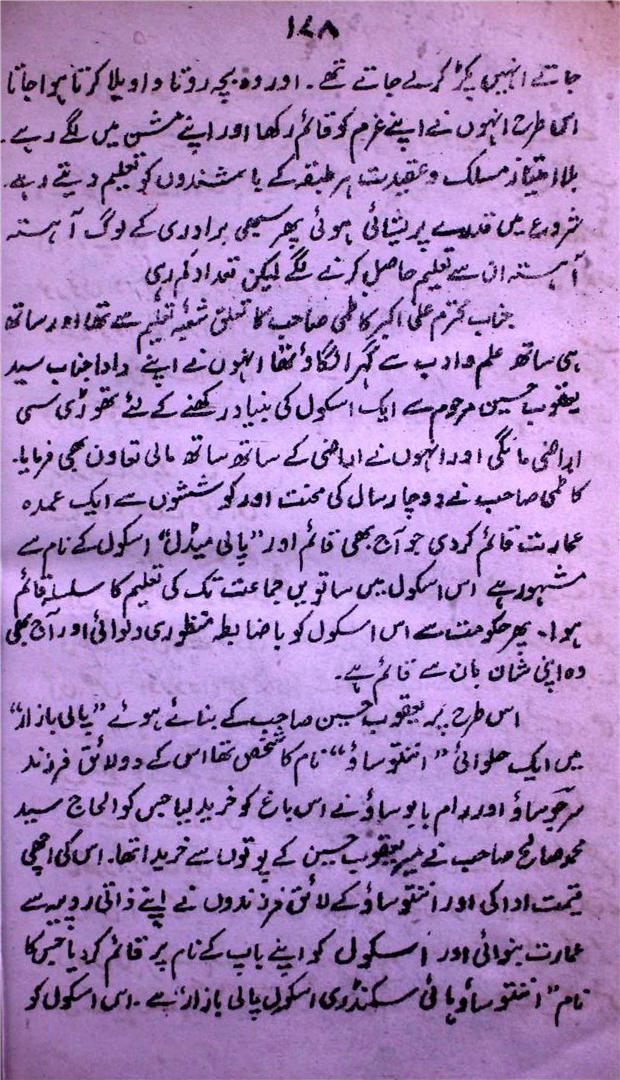 ۱۴۸
جاتے انہیں پکڑ کرلے جاتے تھے۔ اور وہ بچہ روتا واویلا کرتا ہوا جاتا
اس طرح انہوں نے اپنے عزم کو قائم رکھا اور اپنے مشن میں لگے رہے۔
بلا امتیاز مسلک و عقیدت ہر طبقہ کے باشندوں کو تعلیم دیتے رہے۔
شروع میں قدرے پریشانی ہوئی پھر سبھی برادری کے لوگ آہستہ
آہستہ ان سے تعلیم حاصل کرنے لگے لیکن تعداد کم رہی
جناب محترم علی اکبر کاظمی صاحب کا تعلق شعبۂ تعلیم سے تھا اور ساتھ
ہی ساتھ علم و ادب سے گہرا لگاؤ تھا انہوں نے اپنے دادا جناب سید
یعقوب حسین مرحوم سے ایک اسکول کی بنیاد رکھنے کے لئے تھوڑی سی
اراضی مانگی اور انہوں نے اراضی کے ساتھ ساتھ مالی تعاون بھی فرمایا۔
کاظمی صاحب نے دو چار سال کی محنت اور کوششوں سے ایک عمدہ
عمارت قائم کردی جو آج بھی قائم اور "پالی میڈل" اسکول کے نام سے
مشہور ہے اس اسکول میں ساتویں جماعت تک کی تعلیم کا سلسلہ قائم
ہوا۔ پھر حکومت سے اس اسکول کو باضابطہ منظوری دلوائی اور آج بھی
وہ اپنی شان بان سے قائم ہے۔
اس طرح پر یعقوب حسین صاحب کے بنائے ہوئے "پالی بازار"
میں ایک حلوائی "اننتو ساؤ" نام کا شخص تھا اسی کے دو لائق فرزند
سرجو ساؤ اور رام بابو ساؤ نے اس باغ کو خرید لیا جس کو الحاج سید
محمد صالح صاحب نے میر یعقوب حسین کے پوتوں سے خریدا تھا۔ اس کی اچھی
قیمت ادا کی اور اننتو ساؤ کے لائق فرزندوں نے اپنے ذاتی روپیہ سے
عمارت بنوائی اور اسکول کو اپنے باپ کے نام پر قائم کر دیا جس کا
نام "اننتو ساؤ ہائی سکنڈری اسکول پالی بازار" ہے۔ اس اسکول کو